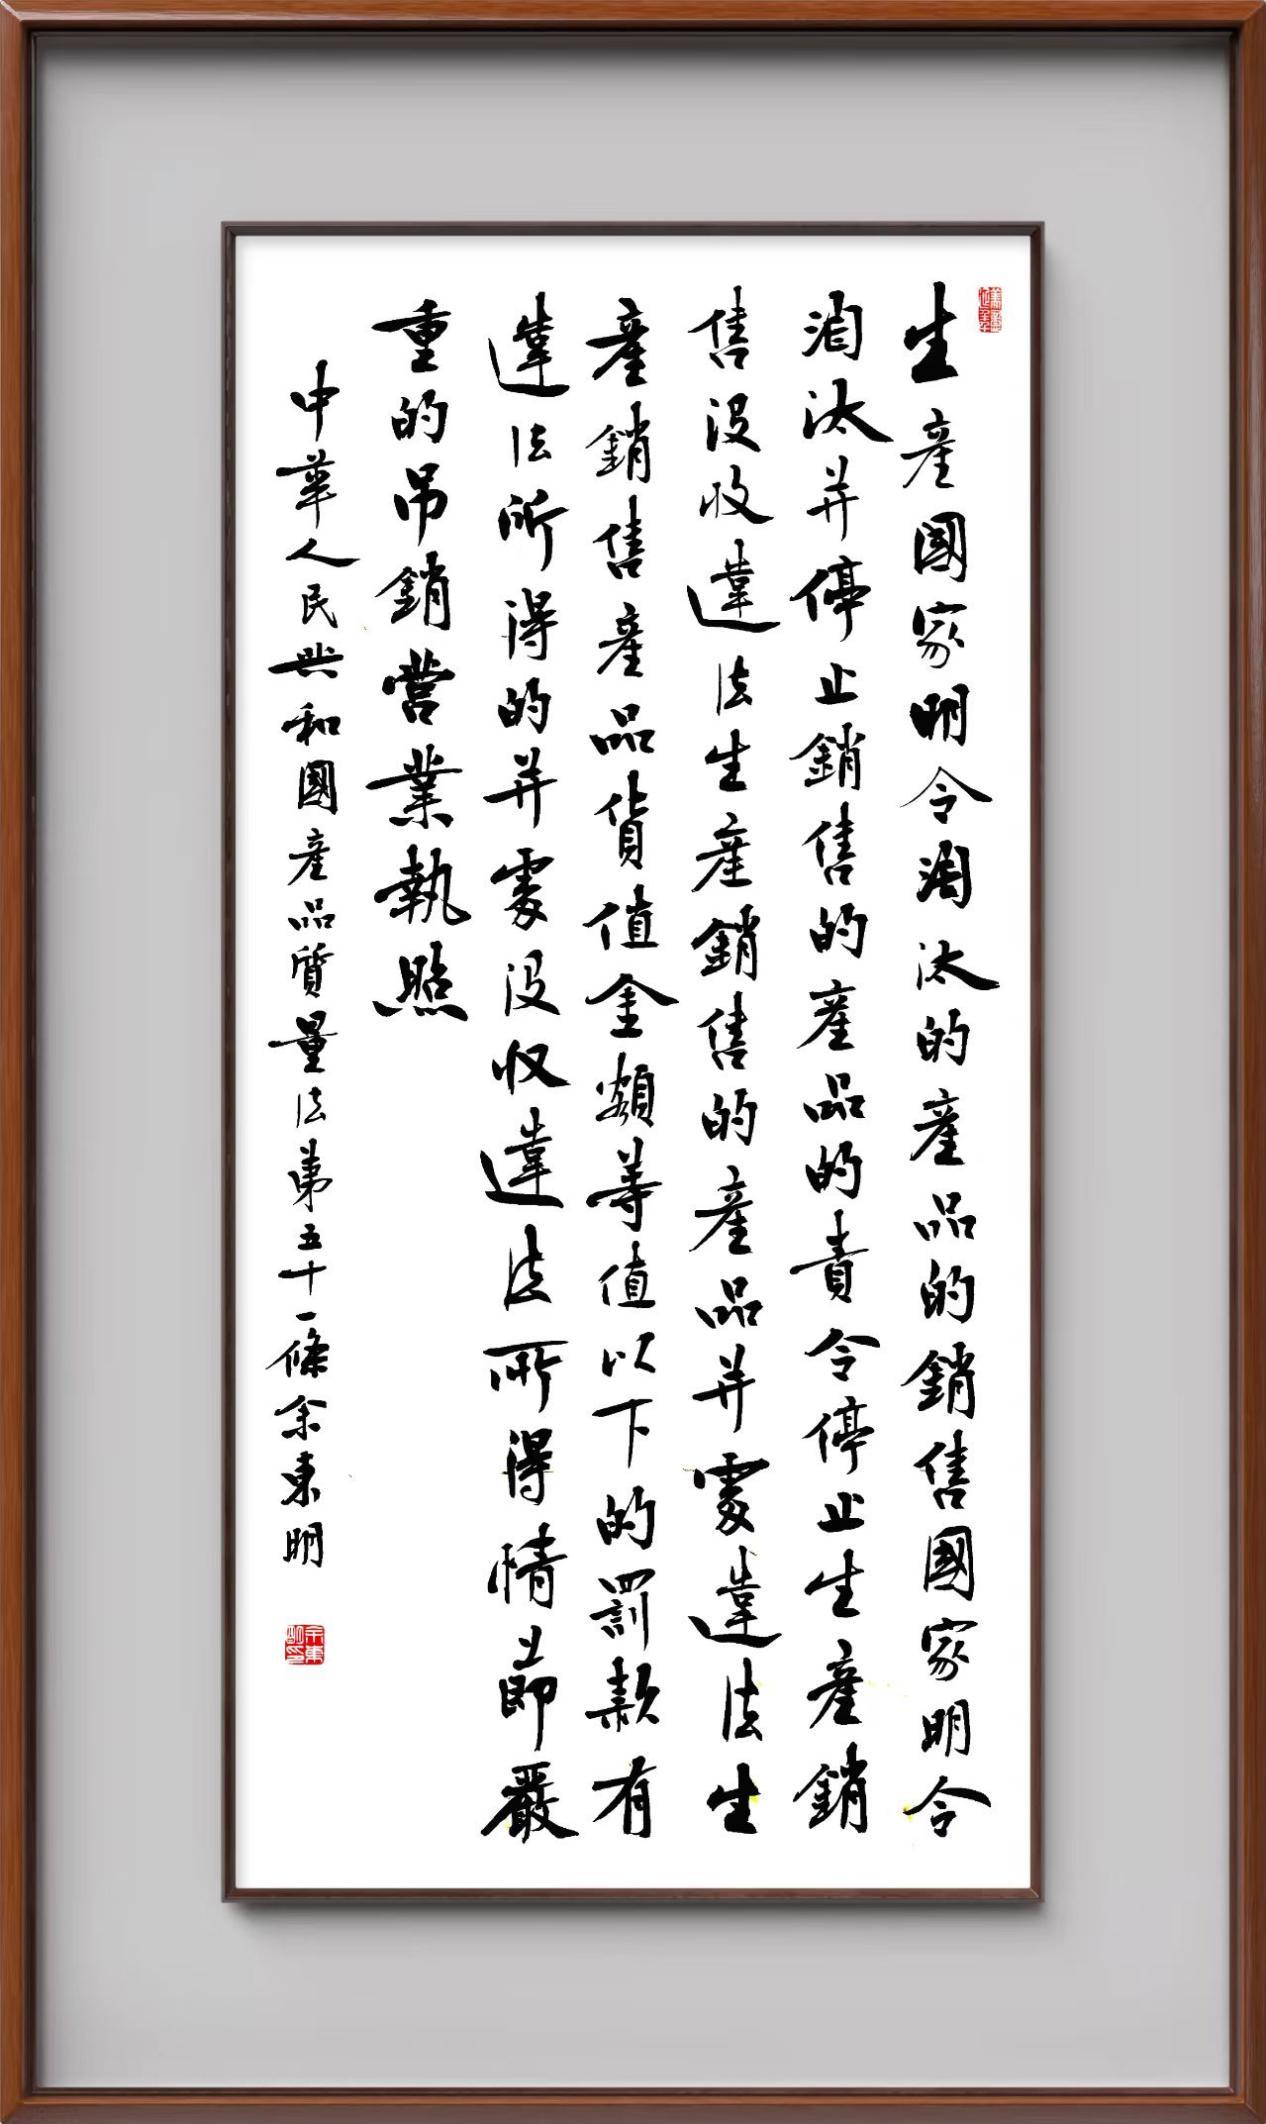 生産國家明令淘汰的産品的銷售國家明令
淘汰并停止銷售的産品的責令停止生産銷
售没收違法生産銷售的産品并處違法生
産銷售産品貨值金額等值以下的罰款有
違法所得的并處没收違法所得情節嚴
重的吊銷營業執照
中華人民共和國産品質量法第五十一條余東明
余東明印